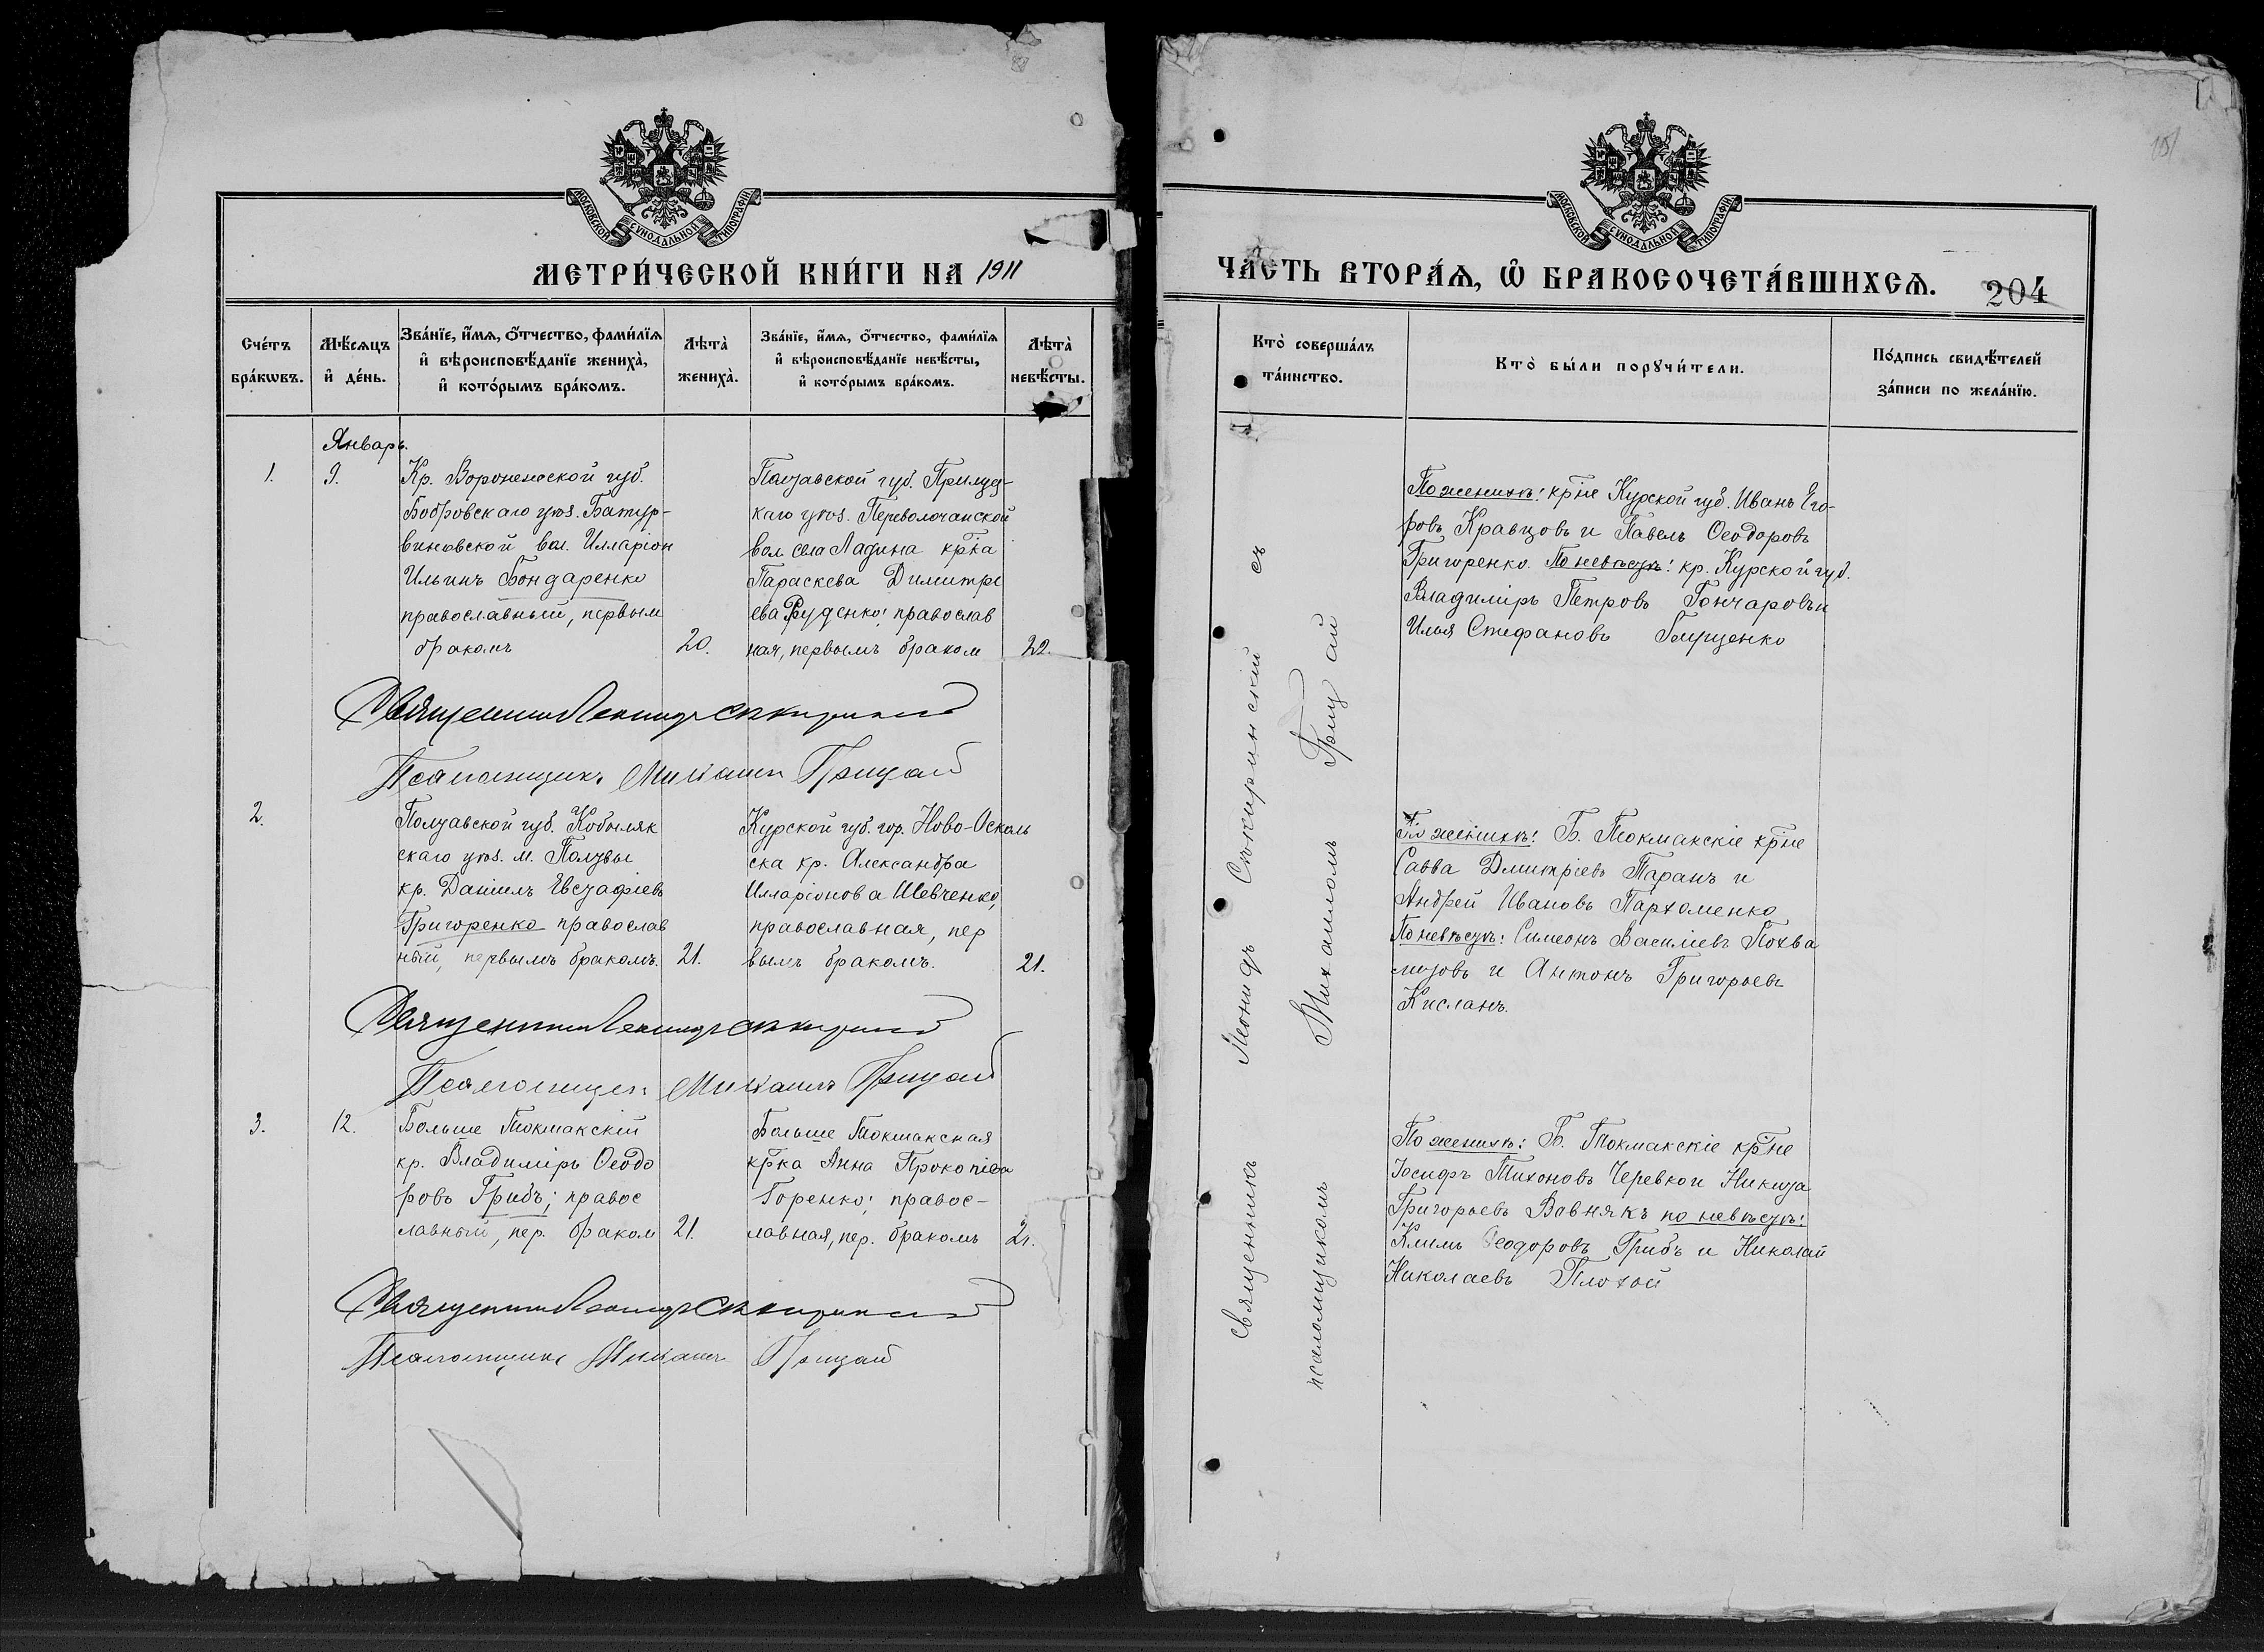 МОСКОВСКОЙ СѴНОДАЛЬНОЙ ТИПОГРАФІИ
МЕТРИ́ЧЕСКОЙ КНИ́ГИ НА 1911
Сче́тъ бра́кѡвъ.
Мѣ́сяцъ и҆ де́нь.
Зва́нїе, и҆́мѧ, ѻ҆́тчество, фами́лїѧ
и҆ вѣроисповѣ́данїе жениха̀,
и҆ кото́рымъ бра́комъ.
Лѣта̀ жениха̀.
Зва́нїе, и҆́мѧ, ѻ҆́тчество, фами́лїѧ
и҆ вѣроисповѣ́данїе невѣ́сты,
и҆ кото́рымъ бра́комъ.
Лѣта̀ невѣ́сты.
Январь.
1.
9.
Кр. Воронежской губ.
Бобровскаго уѣз. Батур-
виновской вол. Илларіон
Ильинъ Бондаренко
православный, первым
бракомъ
20.
Полтавской губ. Прилуц-
каго уѣз. Переволочанской
вол. села Ладина кр-ка
Параскева Димитрі
ева Руденко; православ
ная, первымъ браком
22.
Священник Леонидъ Сѣкиринскій
Псаломщикъ Михаилъ Грицай
2.
Полтавской губ. Кобыляк
скаго уѣз. м.
кр. Даніилъ Евстафіевъ
Григоренко православ
ный, первымъ бракомъ.
21.
Курской губ. гор. Ново-Осколь
ска кр. Александра
Илларіонова Шевченко,
православная, пер
вымъ бракомъ.
21.
Священник Леонидъ Сѣкиринскій
Псаломщикъ Михаилъ Грицай
3.
12.
Больше Токмакскій
кр. Владиміръ Ѳеодо
ровъ Грибъ; правос
лавный, пер. браком
21.
Больше Токмакская
кр-ка Анна Прокопіева
Горенко; правос-
лавная, пер. бракомъ
21.
Священник Леонидъ Сѣкиринскій
Псаломщикъ Михаилъ Грицай
МОСКОВСКОЙ СѴНОДАЛЬНОЙ ТИПОГРАФІИ
ЧА́СТЬ ВТОРА́Ѧ, Ѡ҆ БРАКОСОЧЕТА́ВШИХСѦ.
204
Кто̀ соверша́лъ
та́инство.
Кто̀ бы́ли порꙋчи́тели.
По́дпись свидѣ́телей
за́писи по жела́нїю.
священникъ Леонидъ Сѣкиринскій съ
псаломщикомъ Михаиломъ Грицай
По женихѣ: кр-не Курской губ. Иванъ Его-
ровъ Кравцовъ и Павелъ Ѳеодоровъ
Григоренко. По невѣстѣ: кр. Курской губ.
Владиміръ Петровъ Гончаровъ и
Илья Стефановъ
По женихѣ: Б. Токмакскіе кр-не
Савва Дмитріевъ Таранъ и
Андрей Ивановъ Пархоменко
По невѣстѣ: Симеонъ Василіевъ Похва
литовъ и Антонъ Григорьевъ
Кисланъ.
По женихѣ: Б. Токмакскіе кр-не
Іосифъ Тихоновъ Черевко и Никита
Григорьевъ Вовнякъ по невѣстѣ:
Климъ Ѳеодоровъ Грибъ и Николай
Николаевъ Плохой